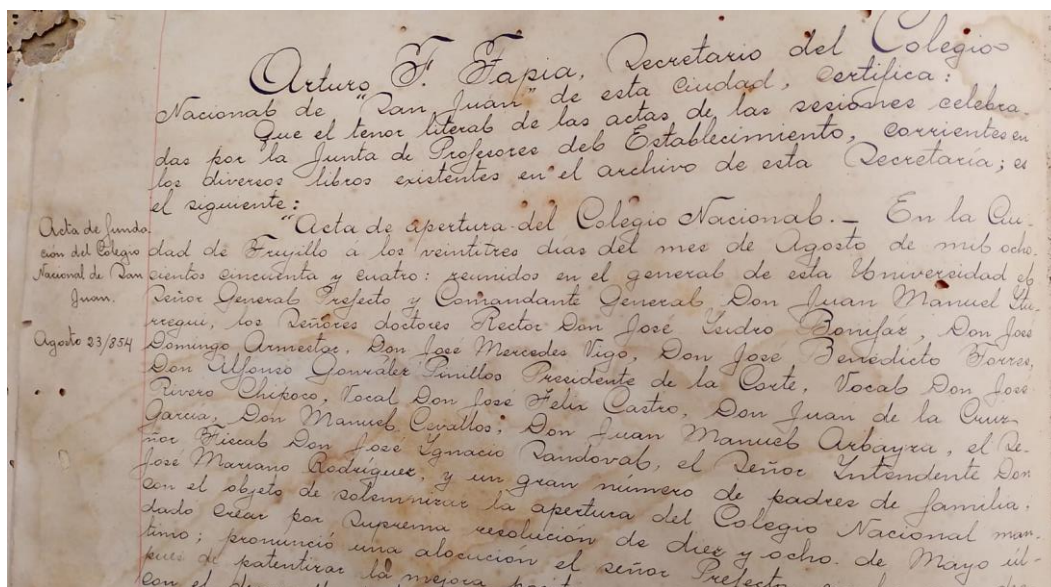 Arturo F. Tapia, Secretario del Colegio
Nacional de "San Juan" de esta ciudad, certifica:
Que el tenor literal de las actas de las sesiones celebra-
das por la Junta de Profesores del Establecimiento, corrientes en
los diversos libros existentes en el archivo de esta Secretaría; es
el siguiente:
"Acta de apertura del Colegio Nacional. — En la Ciu-
dad de Trujillo á los veintitres dias del mes de Agosto de mil ocho-
cientos cincuenta y cuatro: reunidos en el general de esta Universidad el
Señor General Prefecto y Comandante General Don Juan Manuel Itu-
rregui, los Señores doctores Rector Don José Ysidro Bonifáz, Don José
Domingo Armestar, Don José Mercedes Vigo, Don José Benedicto Torres,
Don Alfonso González Pinillos Presidente de la Corte, Vocal Don José
Rivero Chipoco, Vocal Don José Felix Castro, Don Juan de la Cruz
Garcia, Don Manuel Cavallos, Don Juan Manuel Arbayza, el Se-
ñor Fiscal Don José Ygnacio Sandoval, el Señor Intendente Don
José Mariano Rodriguez, y un gran número de padres de familia,
con el objeto de solemnizar la apertura del Colegio Nacional man-
dado crear por Suprema resolución de diez y ocho de Mayo úl-
timo; pronunció una alocución el señor Prefecto
pues de patentizar la mejora
con el
Acta de funda-
ción del Colegio
Nacional de San
Juan.
Agosto 23/854